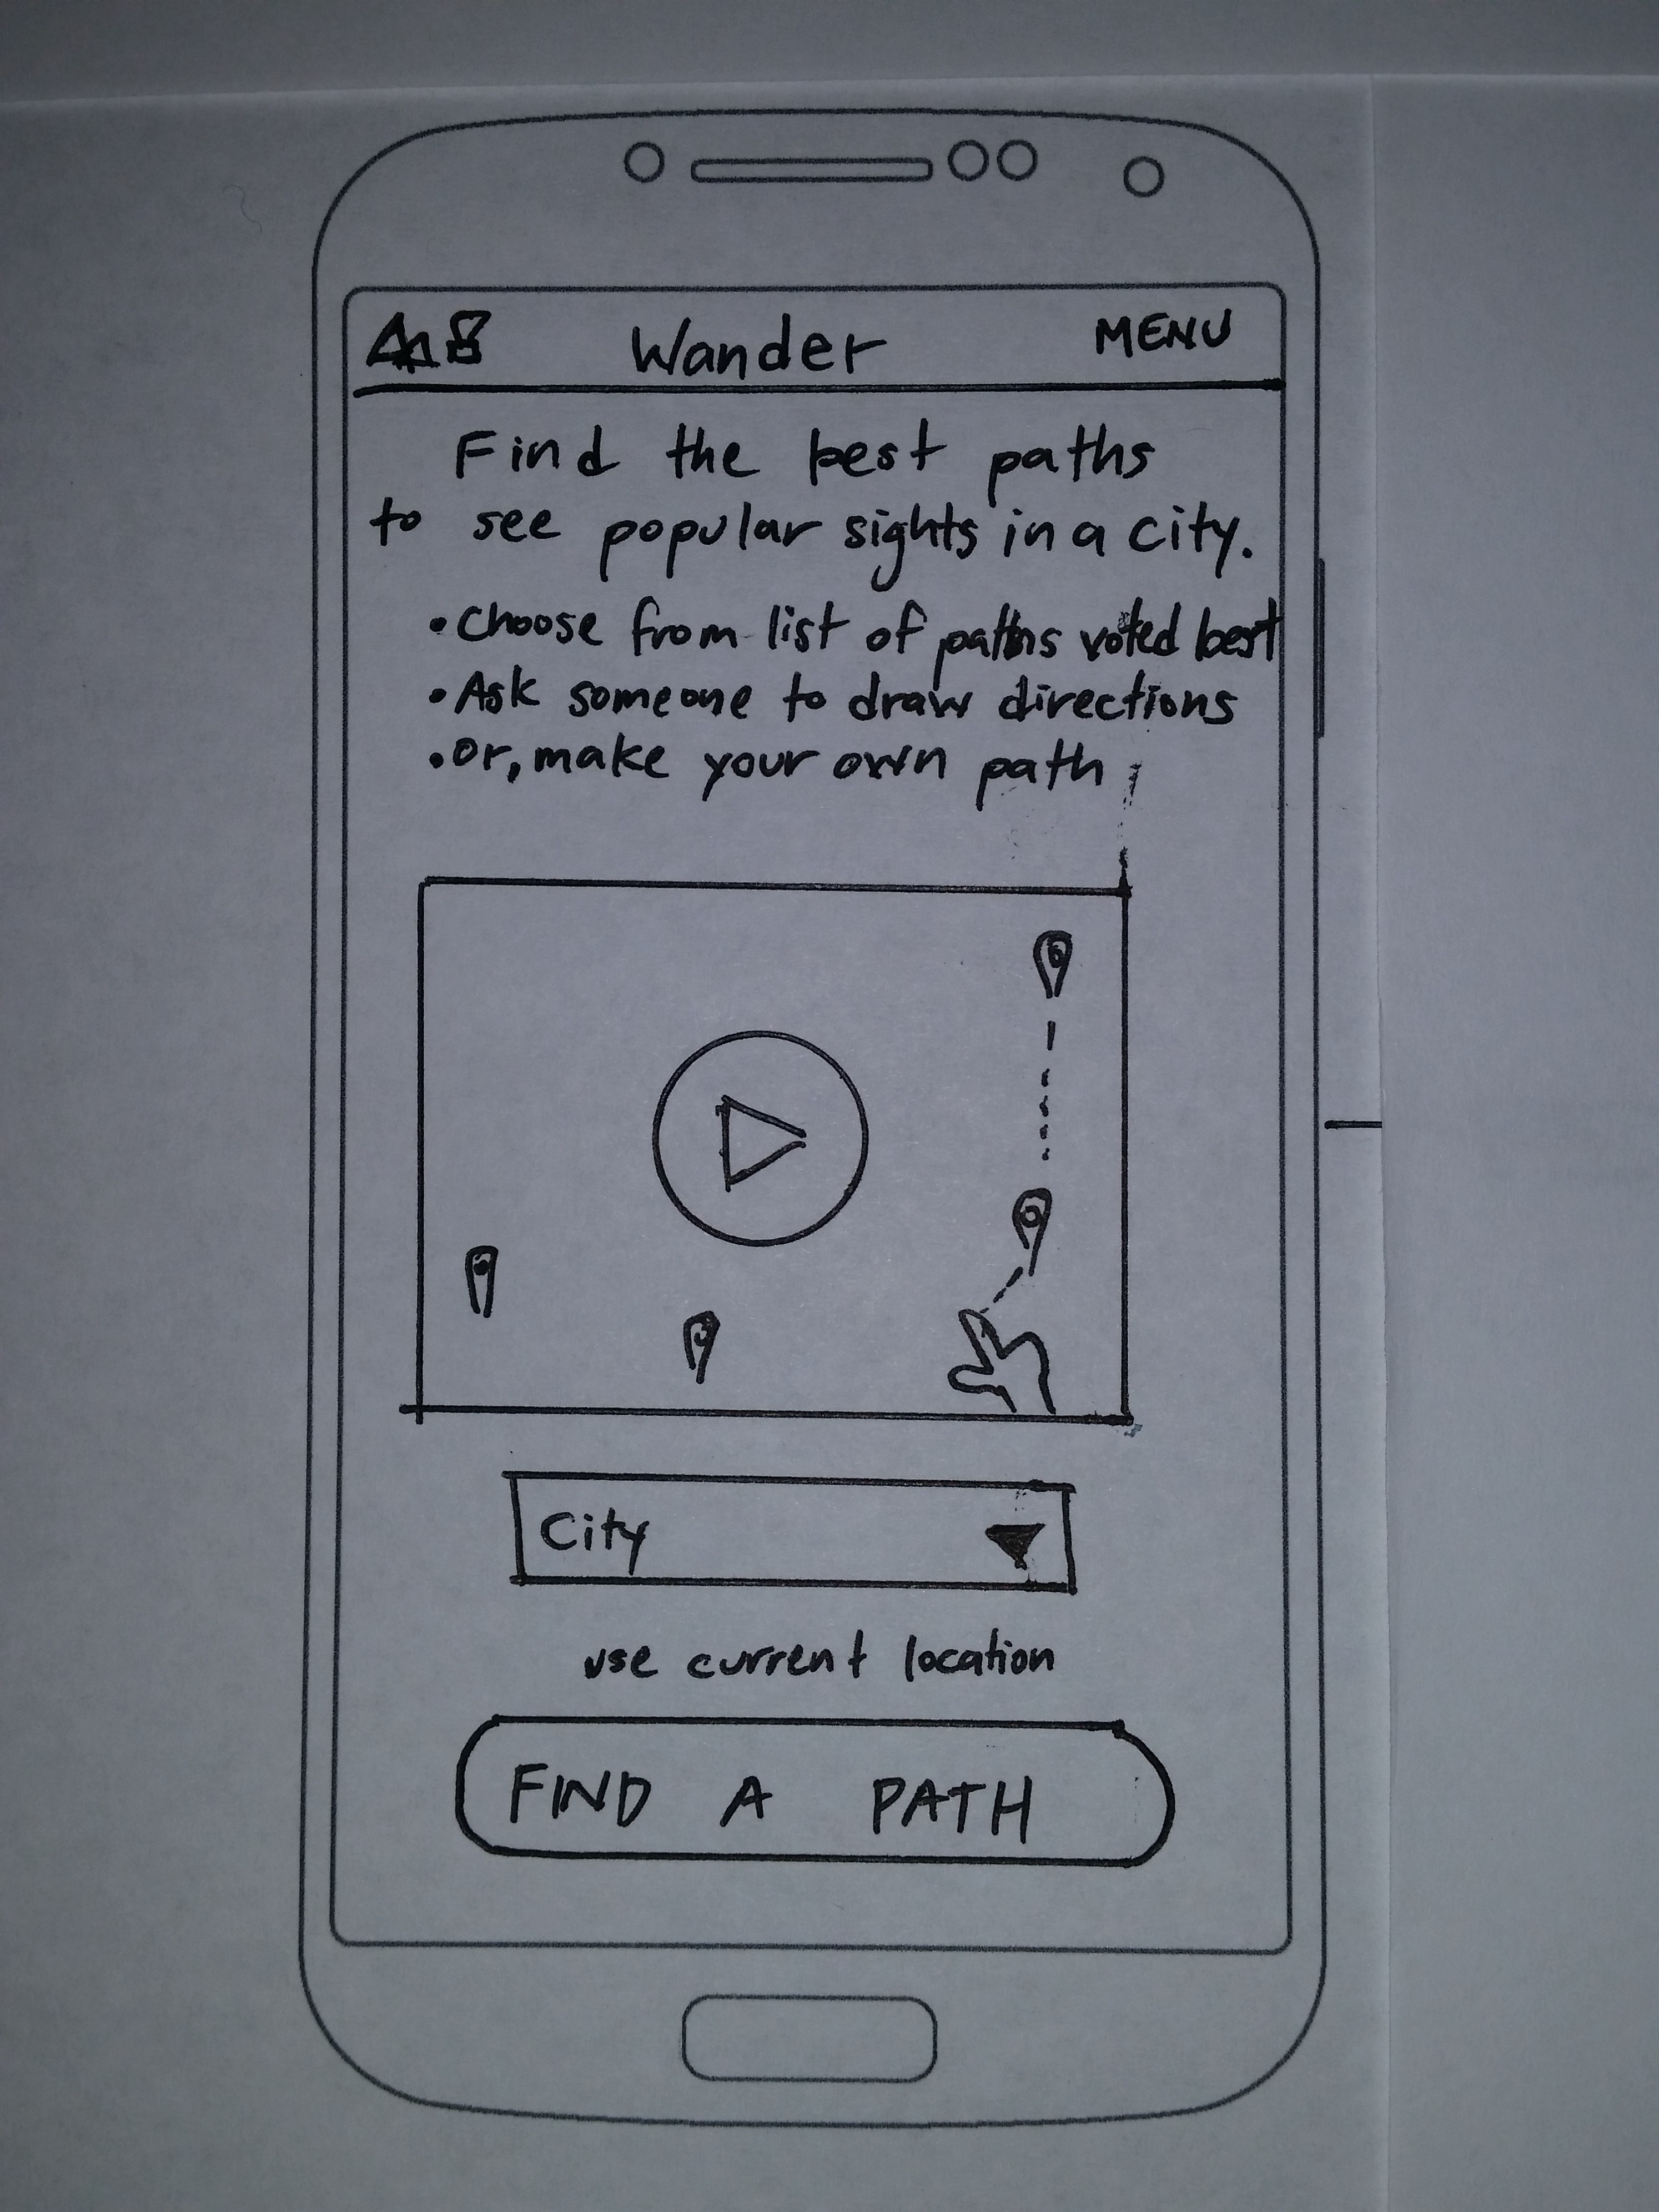 Wander
MENU
Find the best paths
to see popular sights in a city.
• Choose from list of paths voted best
• Ask someone to draw directions
• Or, make your own path
City
use current location
FIND A PATH